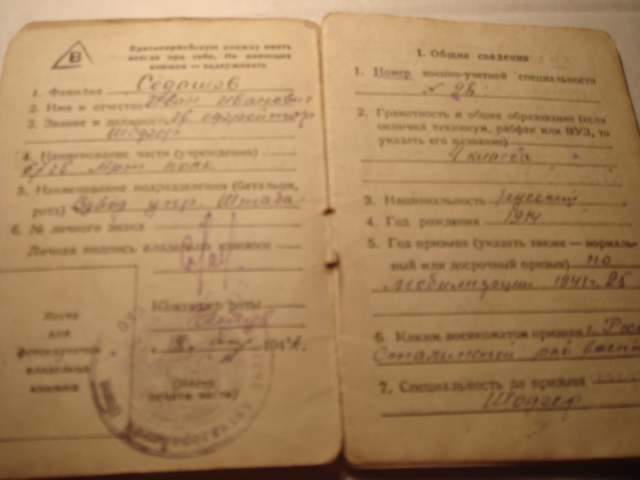 В
Красноармейскую книжку иметь
всегда при себе. Не имеющих
книжек — задерживать
1. Фамилия Седашов
2. Имя и отчество Иван Иванович
3. Звание и должность гв ефрейтор
Шофер
4. Наименование части (учреждения)
гв. Арт полк
5. Наименование подразделения (батальон,
рота) Взвод упр. Штаба
6. № личного знака
Личная подпись владельца книжки
Командир роты
194
Место
для
фотокарточки
владельца
книжки
(Место
печати части)
I. Общие сведения
1. Номер военно-учетной специальности
№ 26
2. Грамотность и общее образование (если
окончил техникум, рабфак или ВУЗ, то
указать его название)
4 класса
3. Национальность русский
4. Год рождения 1914
5. Год призыва (указать также — нормаль-
ный или досрочный призыв) по
мобилизации 1941 г.
6. Каким военкоматом призван г. Рос
Сталинский рай воен
7. Специальность до призыва
Шофер